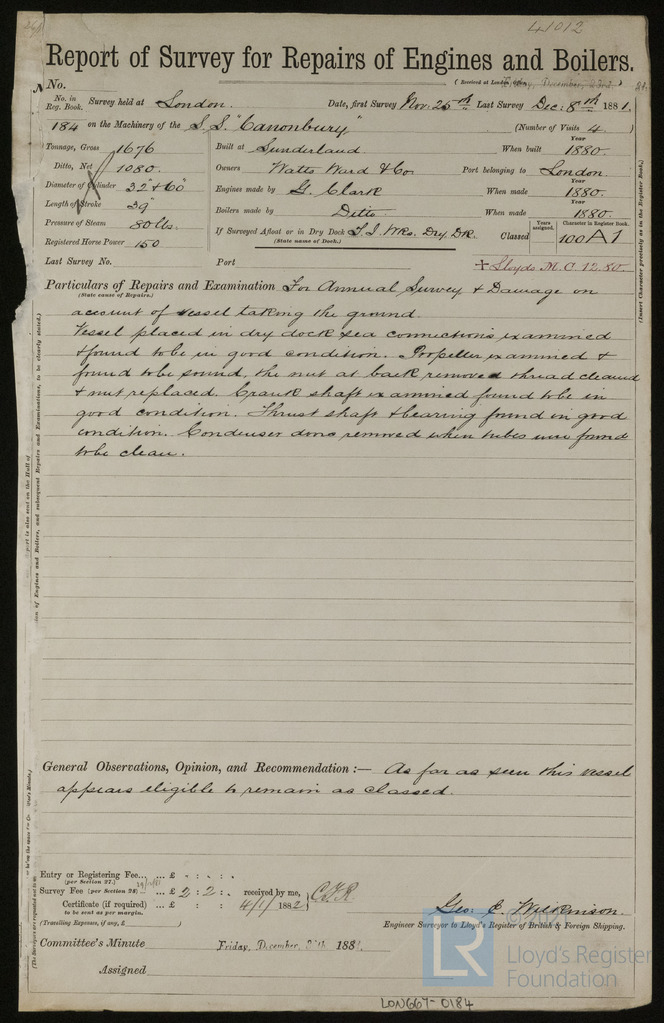 41012
Report of Survey for Repairs of Engines and Boilers.
No. (Received at London Office, Friday, December, 23rd. 81.)
No. in Reg. Book. Survey held at London. Date, first Survey Nov: 25th Last Survey Dec: 8th 1881.
184 on the Machinery of the S.S. "Canonbury" (Number of Visits 4.)
Tonnage, Gross 1676 Built at Sunderland When built Year 1880.
Ditto, Net 1080. Owners Watts Ward & Co. Port belonging to London.
Diameter of Cylinder 32" & 60" Engines made by G. Clark When made Year 1880.
Length of Stroke 39" Boilers made by Ditto When made Year 1880.
Pressure of Steam 80 lbs. If Surveyed Afloat or in Dry Dock Dry Dk. Classed Years assigned. Character in Register Book. 100 A 1
Registered Horse Power 150 (State name of Dock.)
Last Survey No. Port + Lloyds M.C. 12.80.
Particulars of Repairs and Examination For Annual Survey & Damage on
(State cause of Repairs.)
account of vessel taking the ground.
Vessel placed in dry dock sea connections examined
& found to be in good condition. Propeller examined &
found to be sound, the nut at back removed thread cleaned
& nut replaced. Crank shaft examined found to be in
good condition. Thrust shaft & bearing found in good
condition. Condenser doors removed when tubes were found
to be clean.
General Observations, Opinion, and Recommendation :— As far as seen this vessel
appears eligible to remain as Classed.
Entry or Registering Fee... ... £ : :
(per Section 27.)
Survey Fee (per Section 28) ... £ 2 : 2 : received by me,
Certificate (if required) ... £ : : 4/1/1882
to be sent as per margin.
(Travelling Expenses, if any, £ )
Geo: E. Wilkinson.
Engineer Surveyor to Lloyd's Register of British & Foreign Shipping.
Committee's Minute Friday, December, 188
Assigned
(Insert Character precisely as in the Register Book.)
LR Lloyd's Register
Foundation
LON667-0184